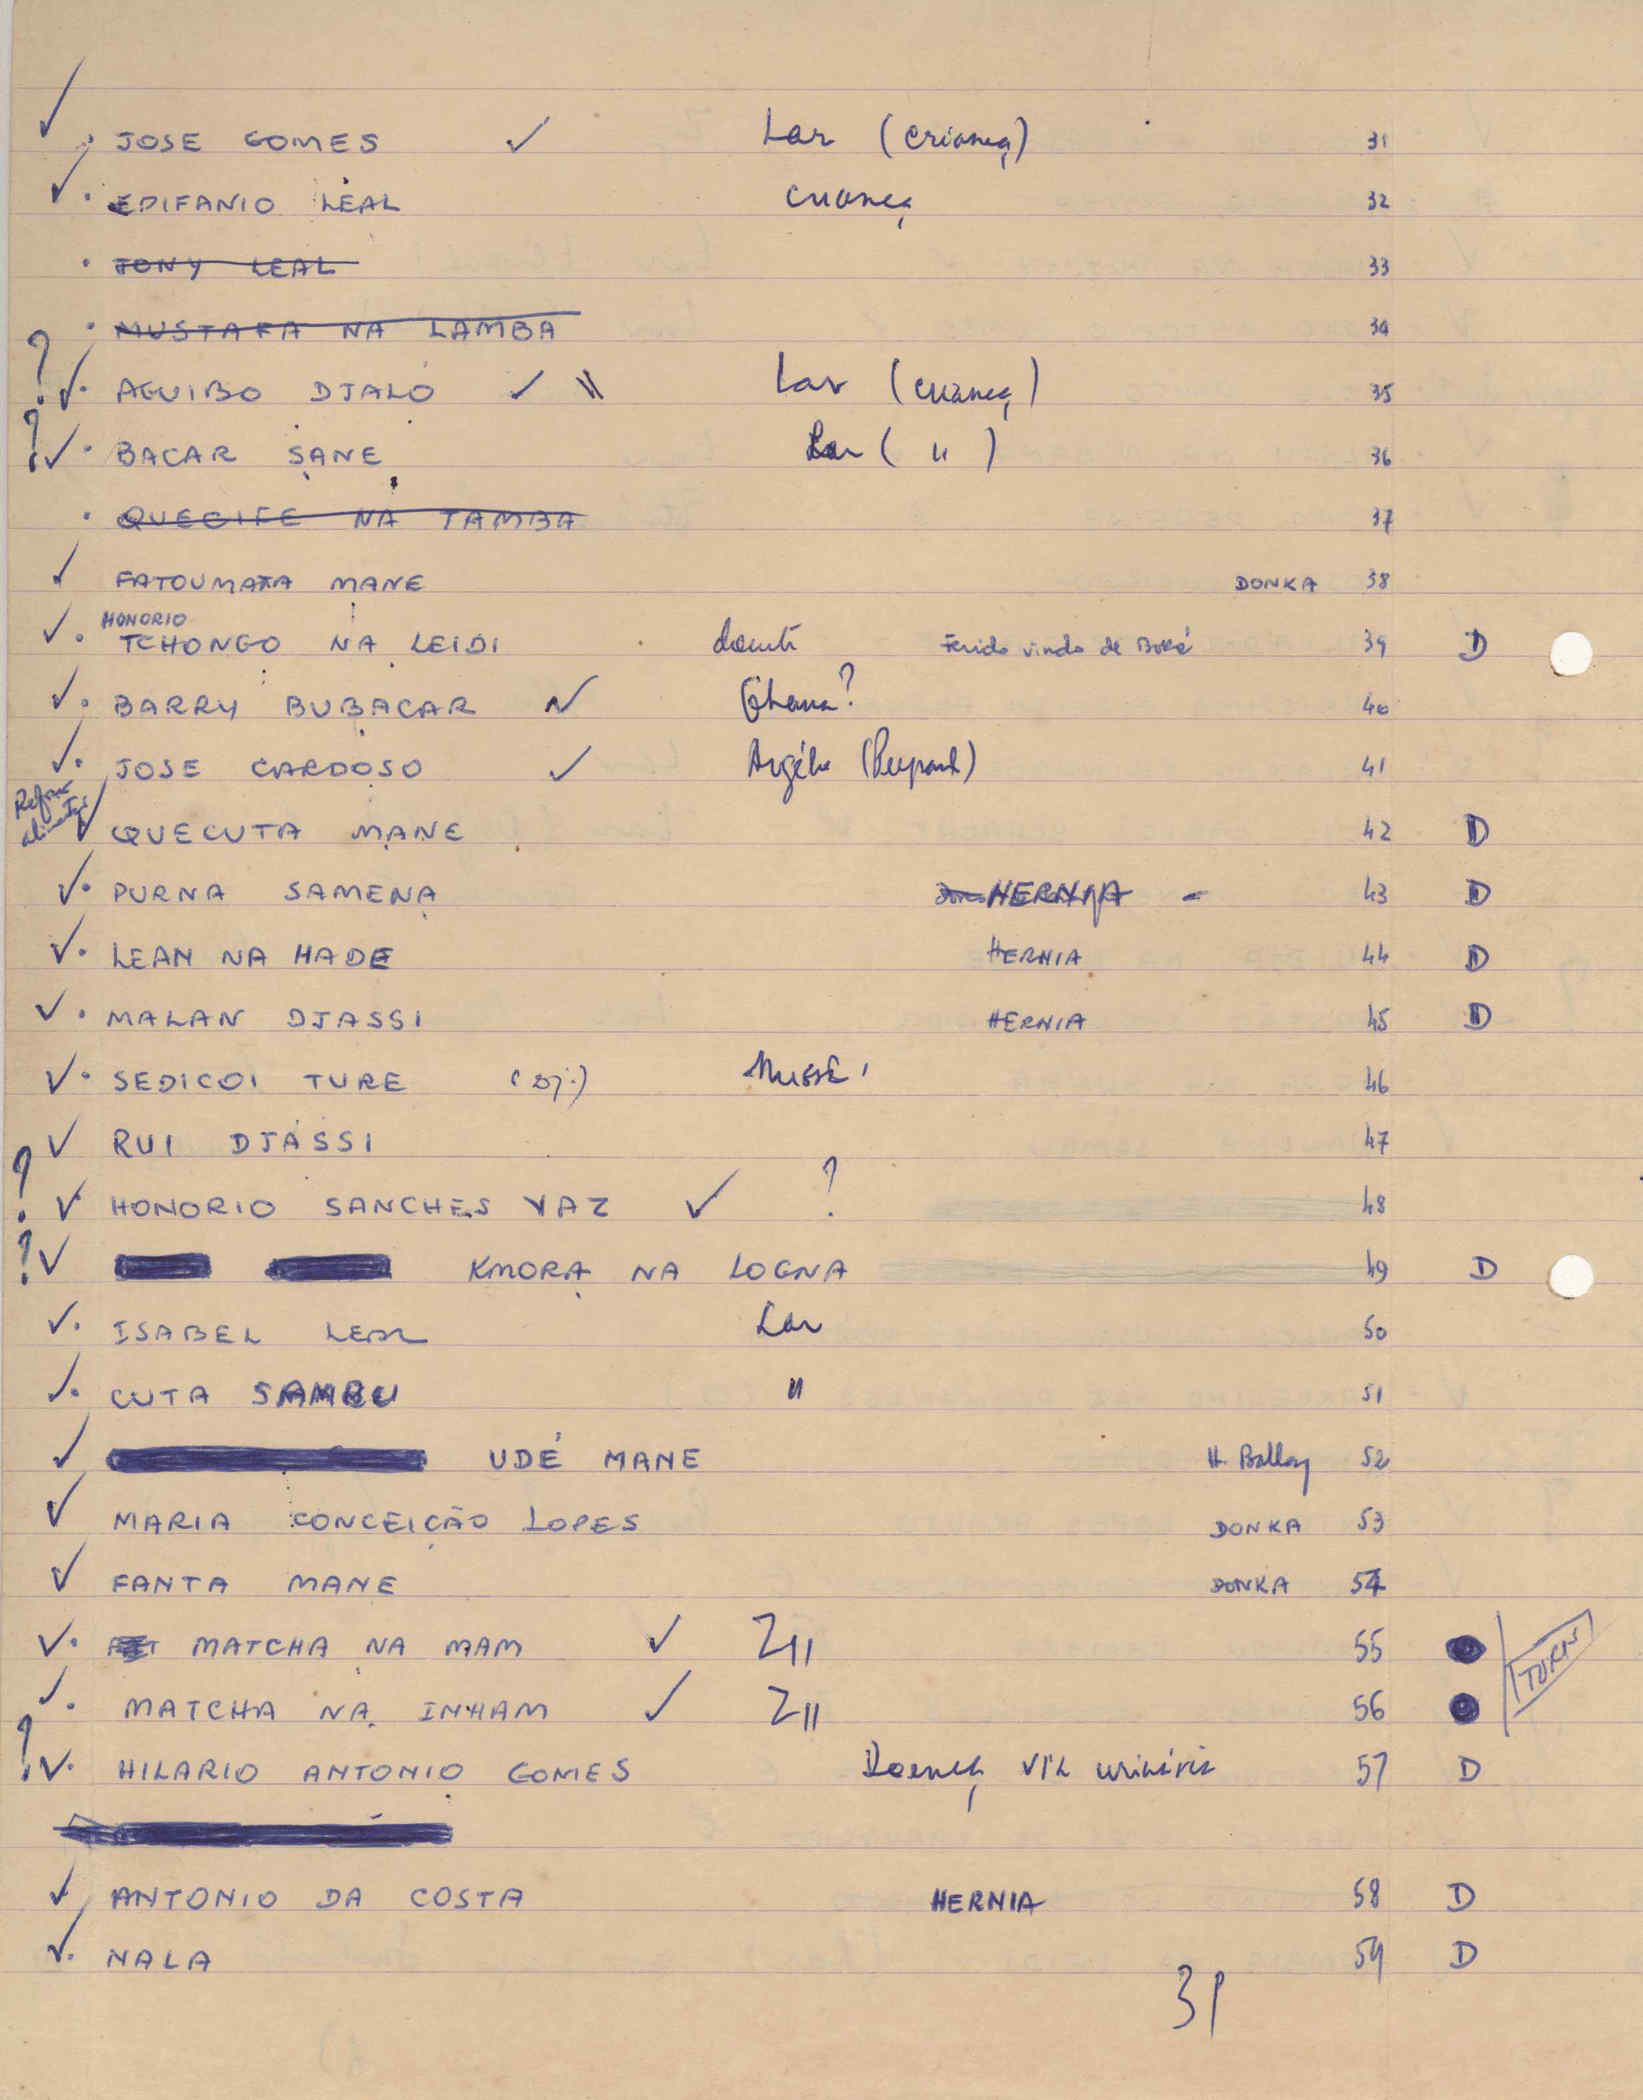 ✓ . JOSE GOMES ✓ Lar (criança) 31
✓ . EDIFANIO LEAL criança 32
. JONY LEAL 33
. MUSTAFA NA LAMBA 34
? ✓ . AGUIBO DJALÓ ✓ \\ Lar (criança) 35
? ✓ . BACAR SANE Lar ( " ) 36
. QUECIFE NA TAMBA 37
✓ FATOUMATA MANE DONKA 38
HONORIO
✓ . TCHONGO NA LEIDI Ferido vindo de Boké 39 D
✓ . BARRY BUBACAR ✓ Ghana? 40
✓ . JOSE CARDOSO ✓ 41
✓ QUECUTA MANE 42 D
✓ . PURNA SAMENA HERNIA - 43 D
✓ . LEAN NA HADE HERNIA 44 D
✓ . MALAN DJASSI HERNIA 45 D
✓ . SEDICOI TURE 46
✓ RUI DJASSI 47
? ✓ HONORIO SANCHES VAZ ✓ ? 48
? ✓ KMORA NA LOGNA 49 D
✓ . ISABEL LEAL Lar 50
✓ . CUTA SAMBU " 51
✓ UDÉ MANE H. Ballay 52
✓ MARIA CONCEIÇÃO LOPES DONKA 53
✓ FANTA MANE DONKA 54
✓ . MATCHA NA MAM ✓ Z11 55
TURN
✓ . MATCHA NA INHAM ✓ Z11 56
? ✓ . HILARIO ANTONIO GOMES Doença via urinária 57 D
✓ ANTONIO DA COSTA HERNIA 58 D
✓ . NALA 59 D